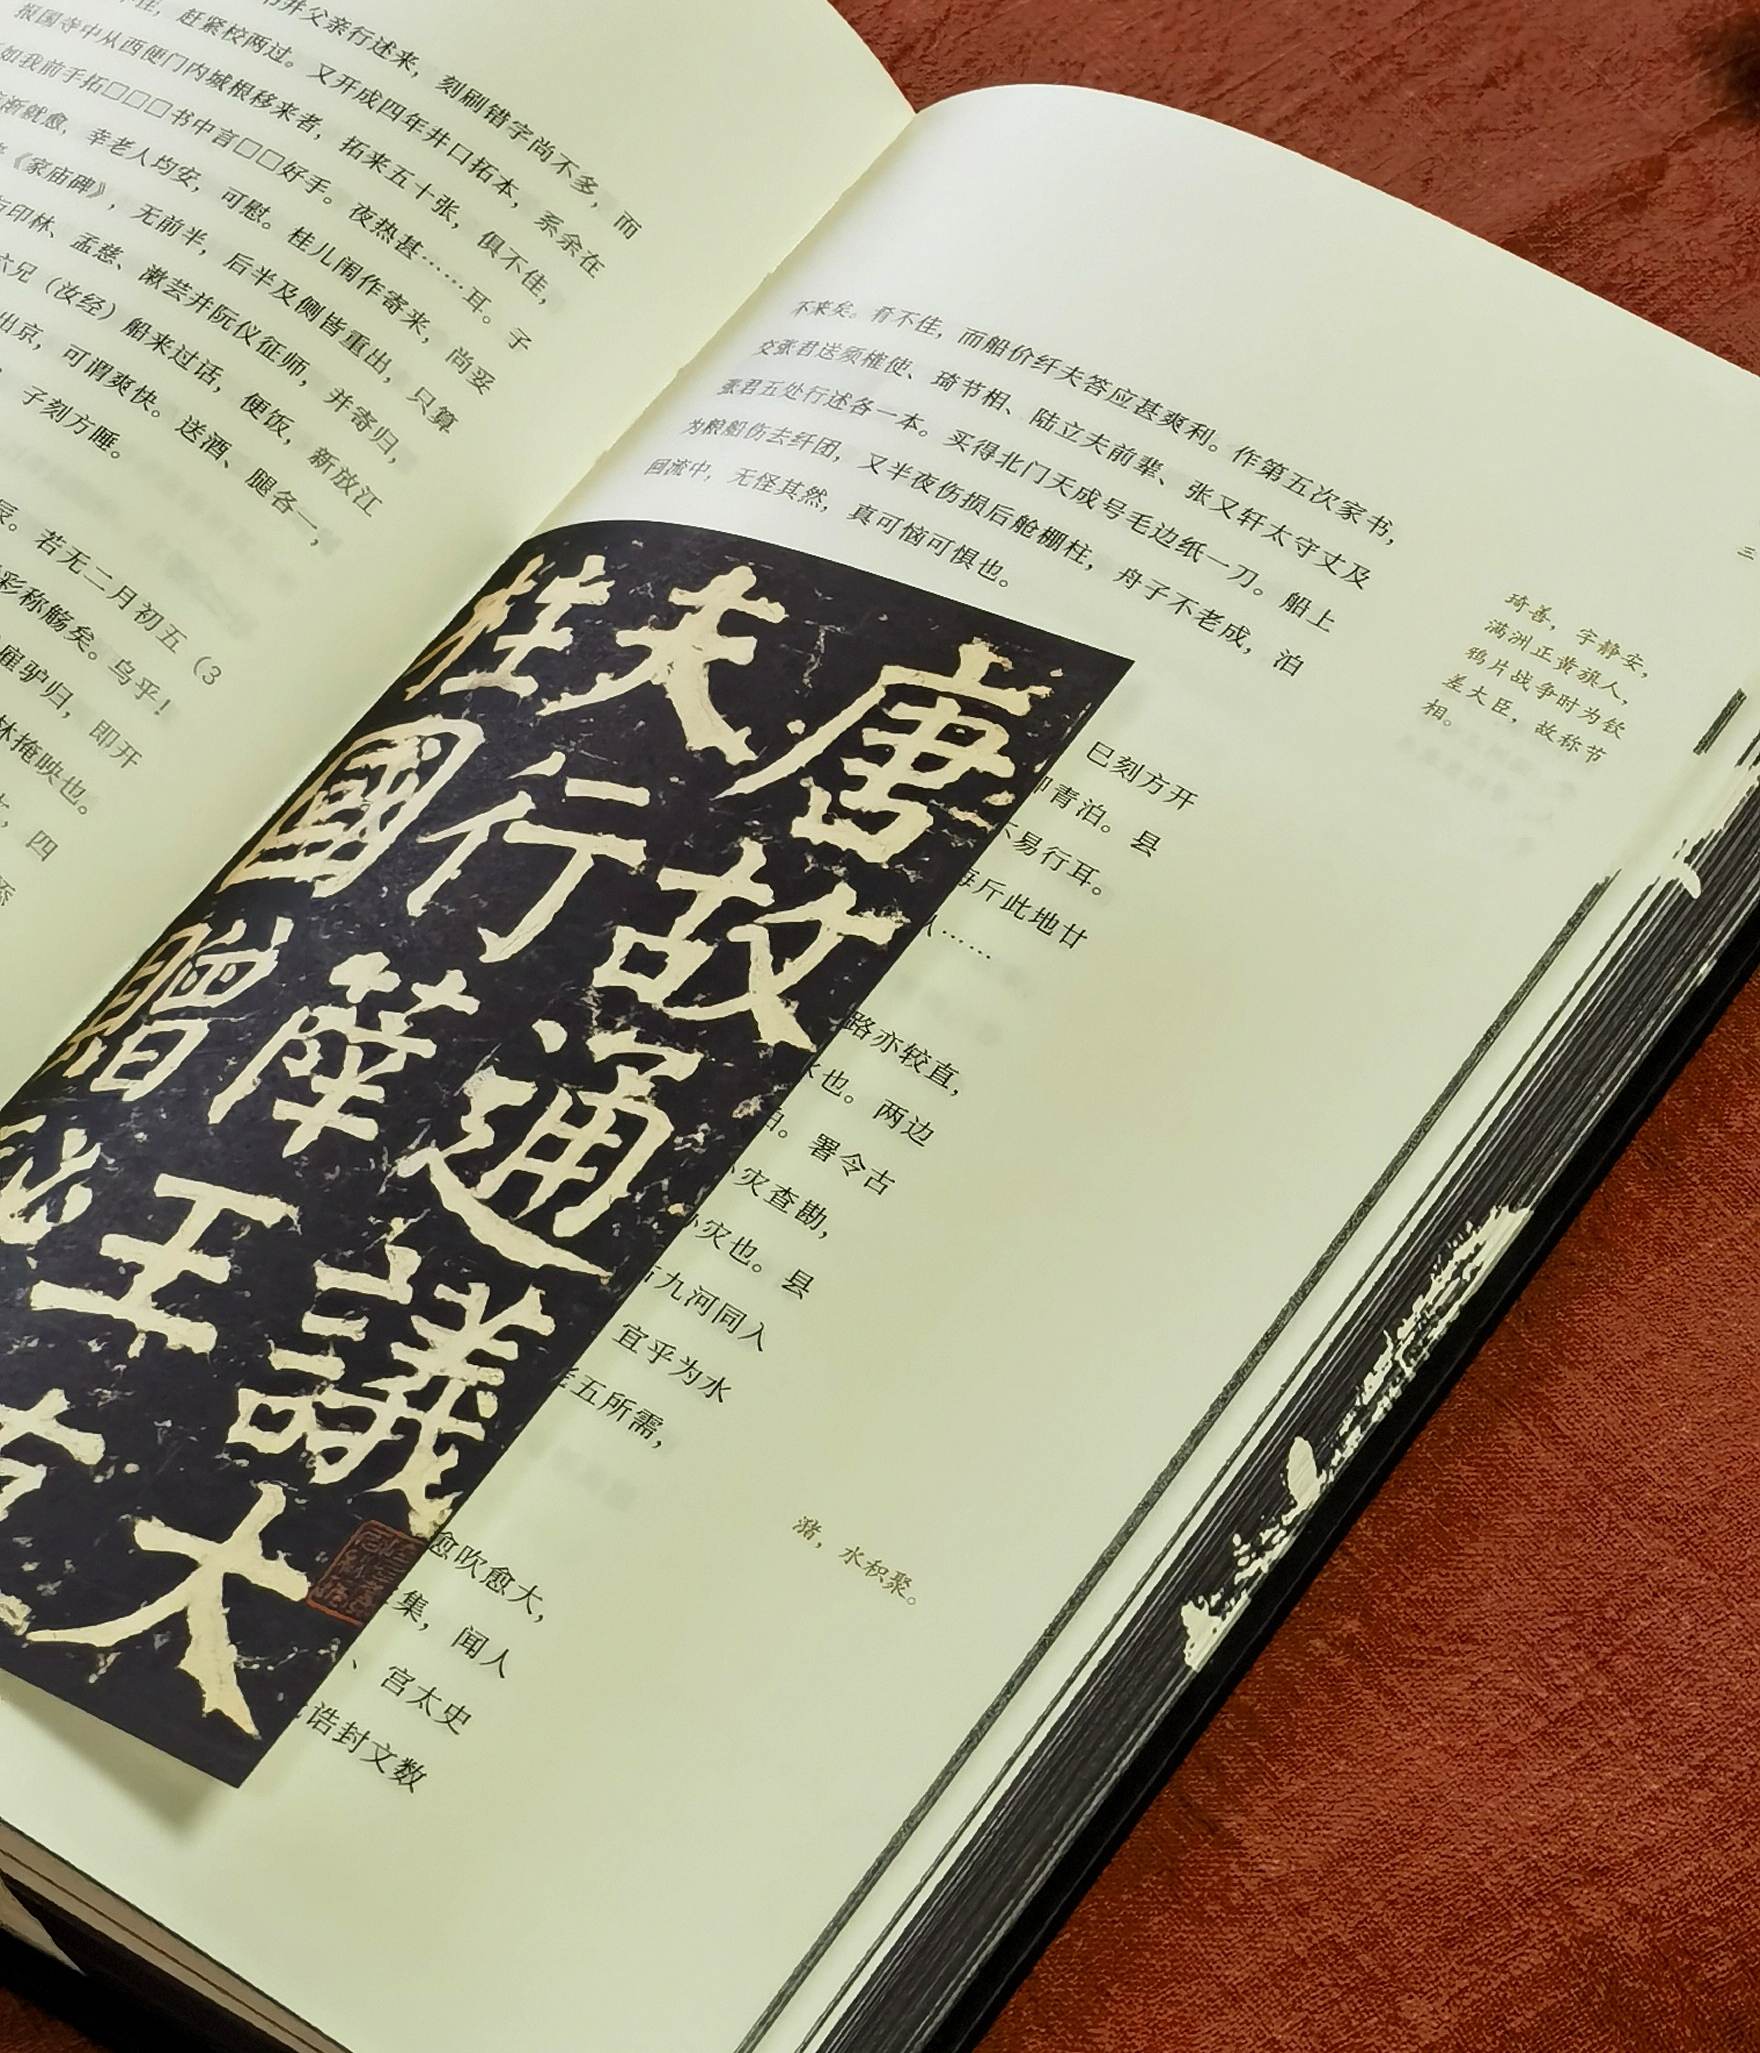 并父亲行述来，刻刷错字尚不多，而
赶紧校两过。又开成四年井口拓本，系余在
报国寺中从西便门内城根移来者，拓来五十张，俱不佳，
如我前手拓□□□书中言□□好手。夜热甚……耳。子
渐就愈，幸老人均安，可慰。桂儿闹作寄来，尚妥
《家庙碑》，无前半，后半及侧皆重出，只算
印林、孟慈、漱芸并阮仪征师，并寄归，
六兄（汝经）船来过话，便饭，新放江
出京，可谓爽快。送酒、腿各一，
子刻方睡。
辰。若无二月初五（3
彩称觞矣。乌乎！
雇驴归，即开
林掩映也。
四
不来矣。肴不佳，而船价纤夫答应甚爽利。作第五次家书，
交张君送须榷使、琦节相、陆立夫前辈、张又轩太守丈及
张君五处行述各一本。买得北门天成号毛边纸一刀。船上
为粮船伤去纤团，又半夜伤损后舱棚柱，舟子不老成，泊
回流中，无怪其然，真可恼可惧也。
巳刻方开
即青泊。县
不易行耳。
每斤此地廿
……
路亦较直，
水也。两边
泊。署令古
灾查勘，
灾也。县
九河同入
宜乎为水
五所需，
愈吹愈大，
集，闻人
、宫太史
诰封文数
三
琦善，字静安，
满洲正黄旗人，
鸦片战争时为钦
差大臣，故称节
相。
潴，水积聚。
唐故通議大
夫行薛王
柱國贈秘